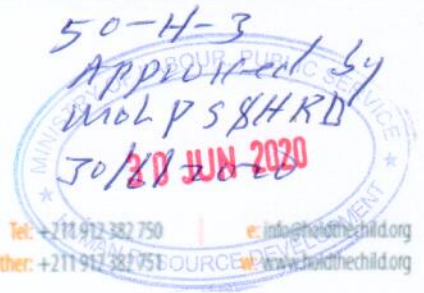 50-H-3
Approved by
MoLPS&HRD
30/6/2020
30 JUN 2020
MINISTRY OF LABOUR, PUBLIC SERVICE
HUMAN RESOURCE DEVELOPMENT
Tel: +211 912 382 750
e: info@holdthechild.org
ther: +211 912 382 751
w: www.holdthechild.org